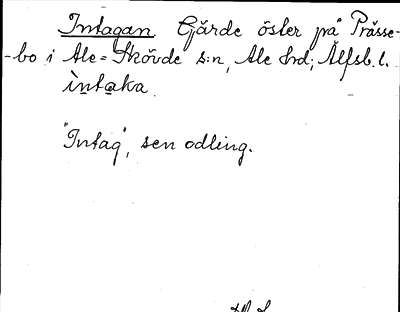 Intagan Gärde öster på Prässe-
-bo i Ale-Skövde s:n, Ale hd; Älfsb. l.
ìntaka.
"Intag", sen odling.